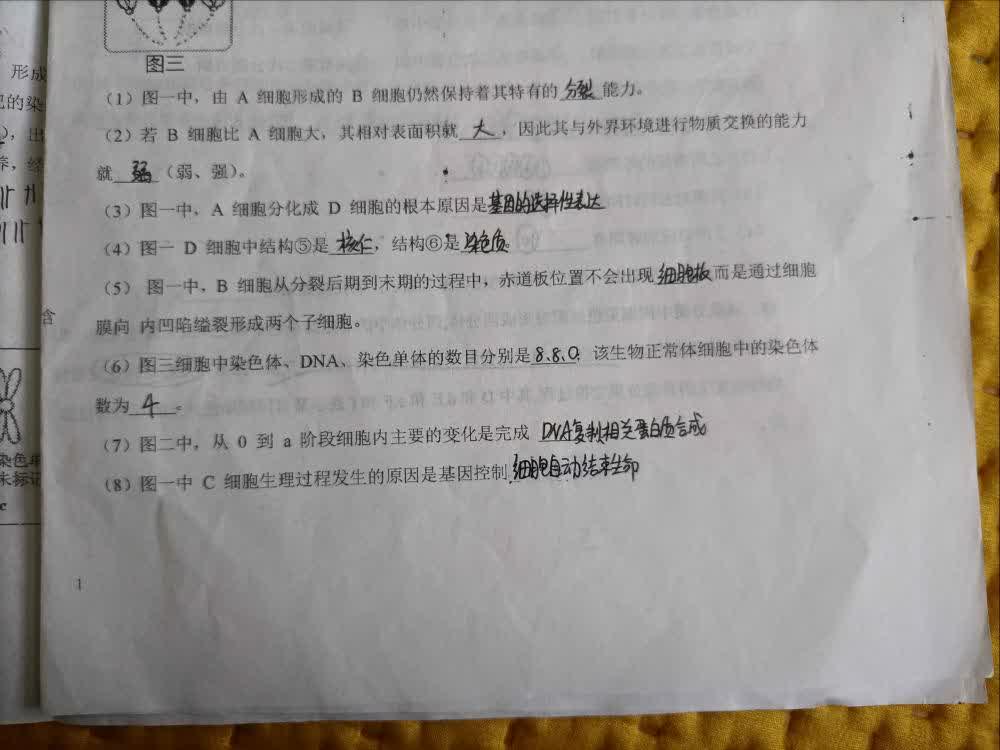 图三
形成
(1)图一中，由 A 细胞形成的 B 细胞仍然保持着其特有的 分裂 能力。
已的染
(2)若 B 细胞比 A 细胞大，其相对表面积就 大 ，因此其与外界环境进行物质交换的能力
就 弱 （弱、强）。
(3)图一中，A 细胞分化成 D 细胞的根本原因是基因的选择性表达
(4)图一 D 细胞中结构⑤是 核仁，结构⑥是 染色质。
(5) 图一中，B 细胞从分裂后期到末期的过程中，赤道板位置不会出现 细胞板 而是通过细胞
含
膜向 内凹陷缢裂形成两个子细胞。
(6)图三细胞中染色体、DNA、染色单体的数目分别是8.8.0；该生物正常体细胞中的染色体
数为 4 。
(7)图二中，从 0 到 a 阶段细胞内主要的变化是完成 DNA复制相关蛋白质合成
染色单
未标记
(8)图一中 C 细胞生理过程发生的原因是基因控制 细胞自动结束生命
c
1